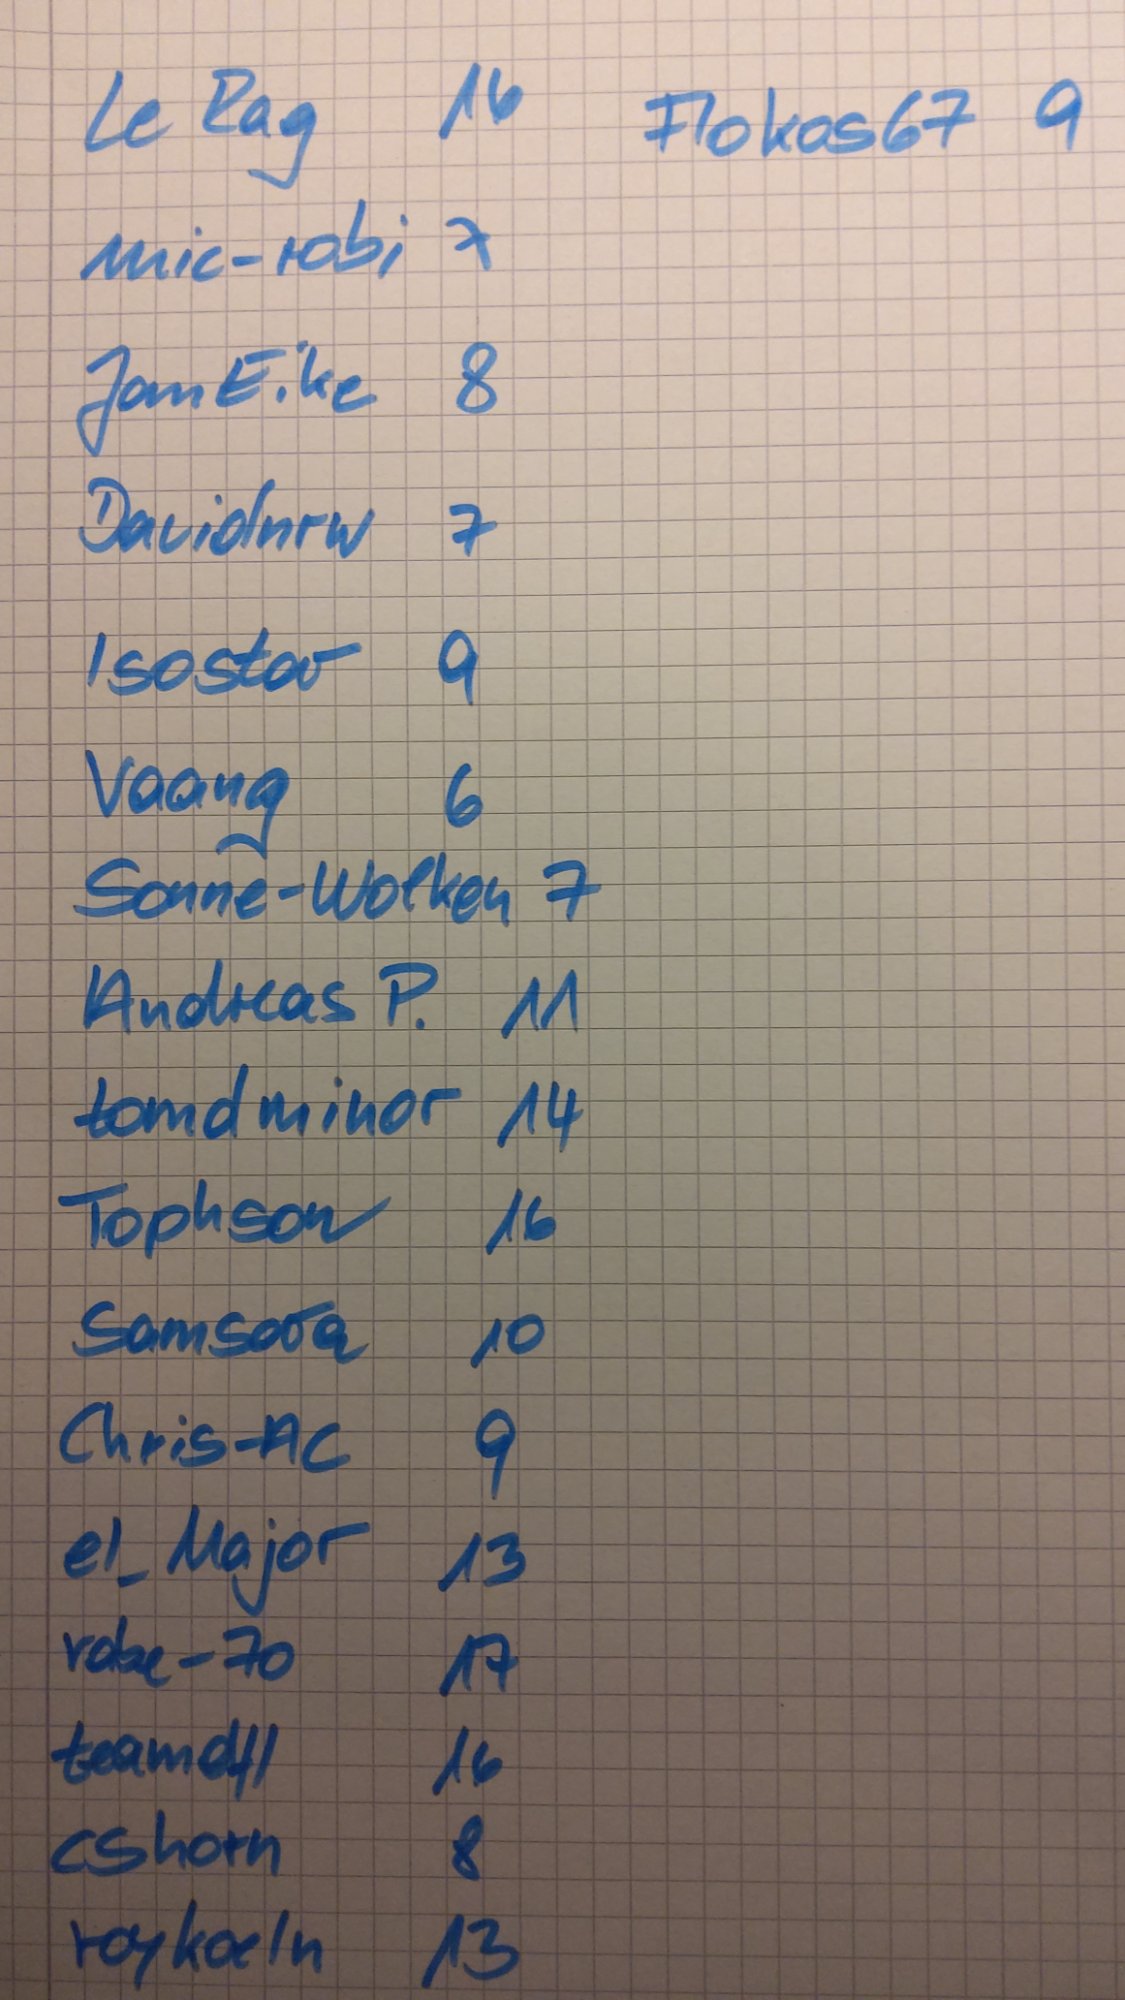 Le Rag 16 Flokas67 9
mic-robi 7
JanEike 8
Davidnrw 7
Isostar 9
Vaang 6
Sonne-Wolken 7
Andreas P. 11
tomdminor 14
Tophson 16
Samsara 10
Chris-AC 9
el_Major 13
robe-70 17
teamd41 16
cshorn 8
roykoeln 13